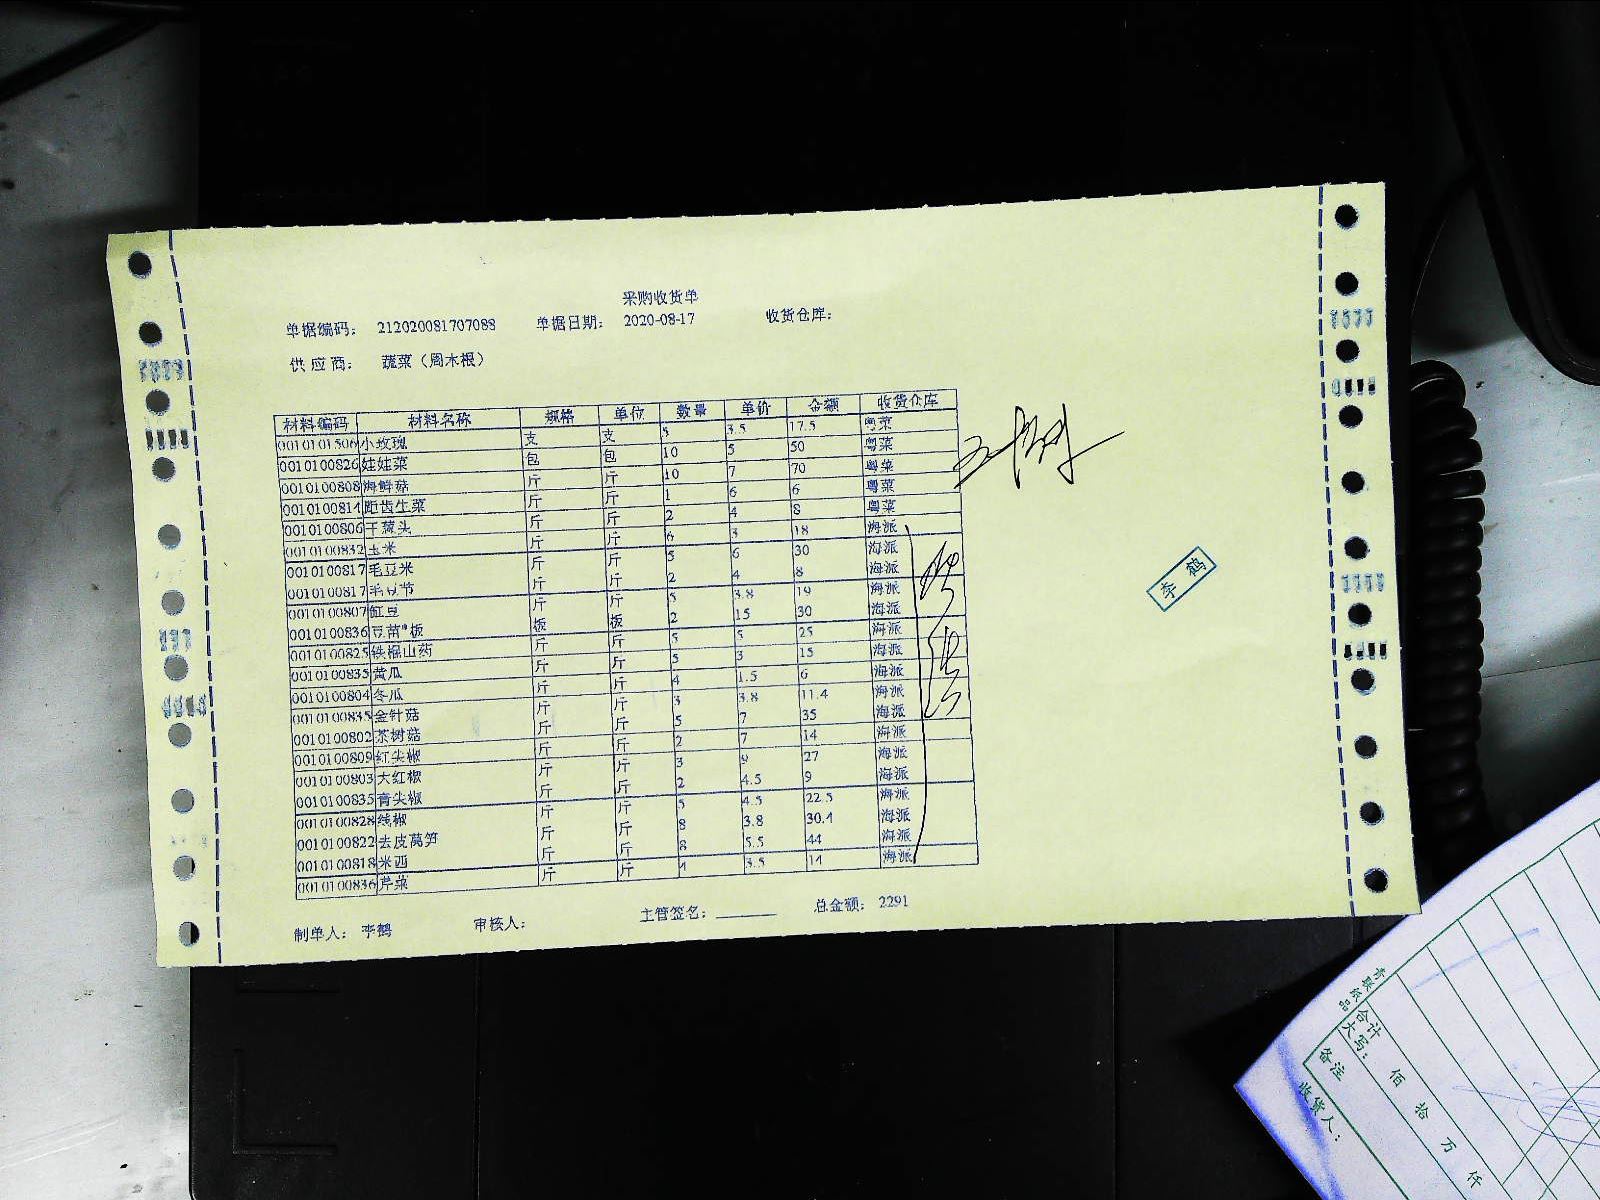 采购收货单
单据编码： 212020081707088 单据日期： 2020-08-17 收货仓库：
供应商： 蔬菜（周木根）
材料编码 材料名称 规格 单位 数量 单价 金额 收货仓库
0010101506 小玫瑰 支 支 5 3.5 17.5 粤菜
0010100826 娃娃菜 包 包 10 5 50 粤菜
0010100808 海鲜菇 斤 斤 10 7 70 粤菜
0010100814 距齿生菜 斤 斤 1 6 6 粤菜
0010100806 干葱头 斤 斤 2 4 8 粤菜
0010100832 玉米 斤 斤 6 3 18 海派
0010100817 毛豆米 斤 斤 5 6 30 海派
0010100817 毛豆节 斤 斤 2 4 8 海派
0010100807 豇豆 斤 斤 5 3.8 19 海派
0010100836 豆苗*板 板 板 2 15 30 海派
0010100825 铁棍山药 斤 斤 5 5 25 海派
0010100835 黄瓜 斤 斤 5 3 15 海派
0010100804 冬瓜 斤 斤 4 1.5 6 海派
0010100835 金针菇 斤 斤 3 3.8 11.4 海派
0010100802 茶树菇 斤 斤 5 7 35 海派
0010100809 红尖椒 斤 斤 2 7 14 海派
0010100803 大红椒 斤 斤 3 9 27 海派
0010100835 青尖椒 斤 斤 2 4.5 9 海派
0010100828 线椒 斤 斤 5 4.5 22.5 海派
0010100822 去皮莴笋 斤 斤 8 3.8 30.4 海派
0010100818 米西 斤 斤 8 5.5 44 海派
0010100836 芹菜 斤 斤 4 3.5 14 海派
制单人： 李鹤 审核人： 主管签名： 总金额： 2291
李鹤
青联纸品
合计
大写： 佰 拾 万 仟
备注
收货人：